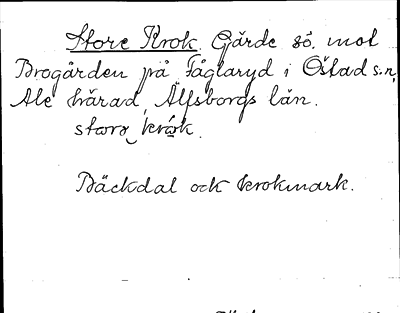 Store Krok. Gärde sö. mot
Brogården på Fåglaryd i Östad s:n,
Ale härad, Älfsborgs län.
storə krok.
Bäckdal och krokmark.